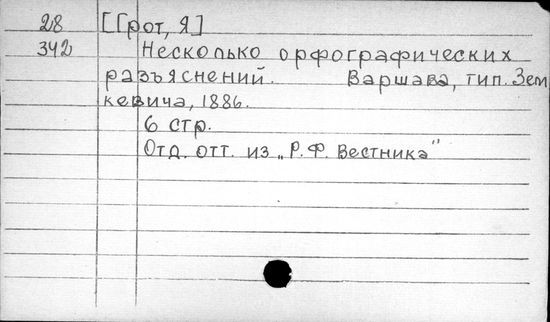 28 [Грот, Я]
342 Несколько орфографических
разъяснений. Варшава, тип. Зем
кевича, 1886.
6 стр.
Отд. отт. из „Р. Ф. Вестника"